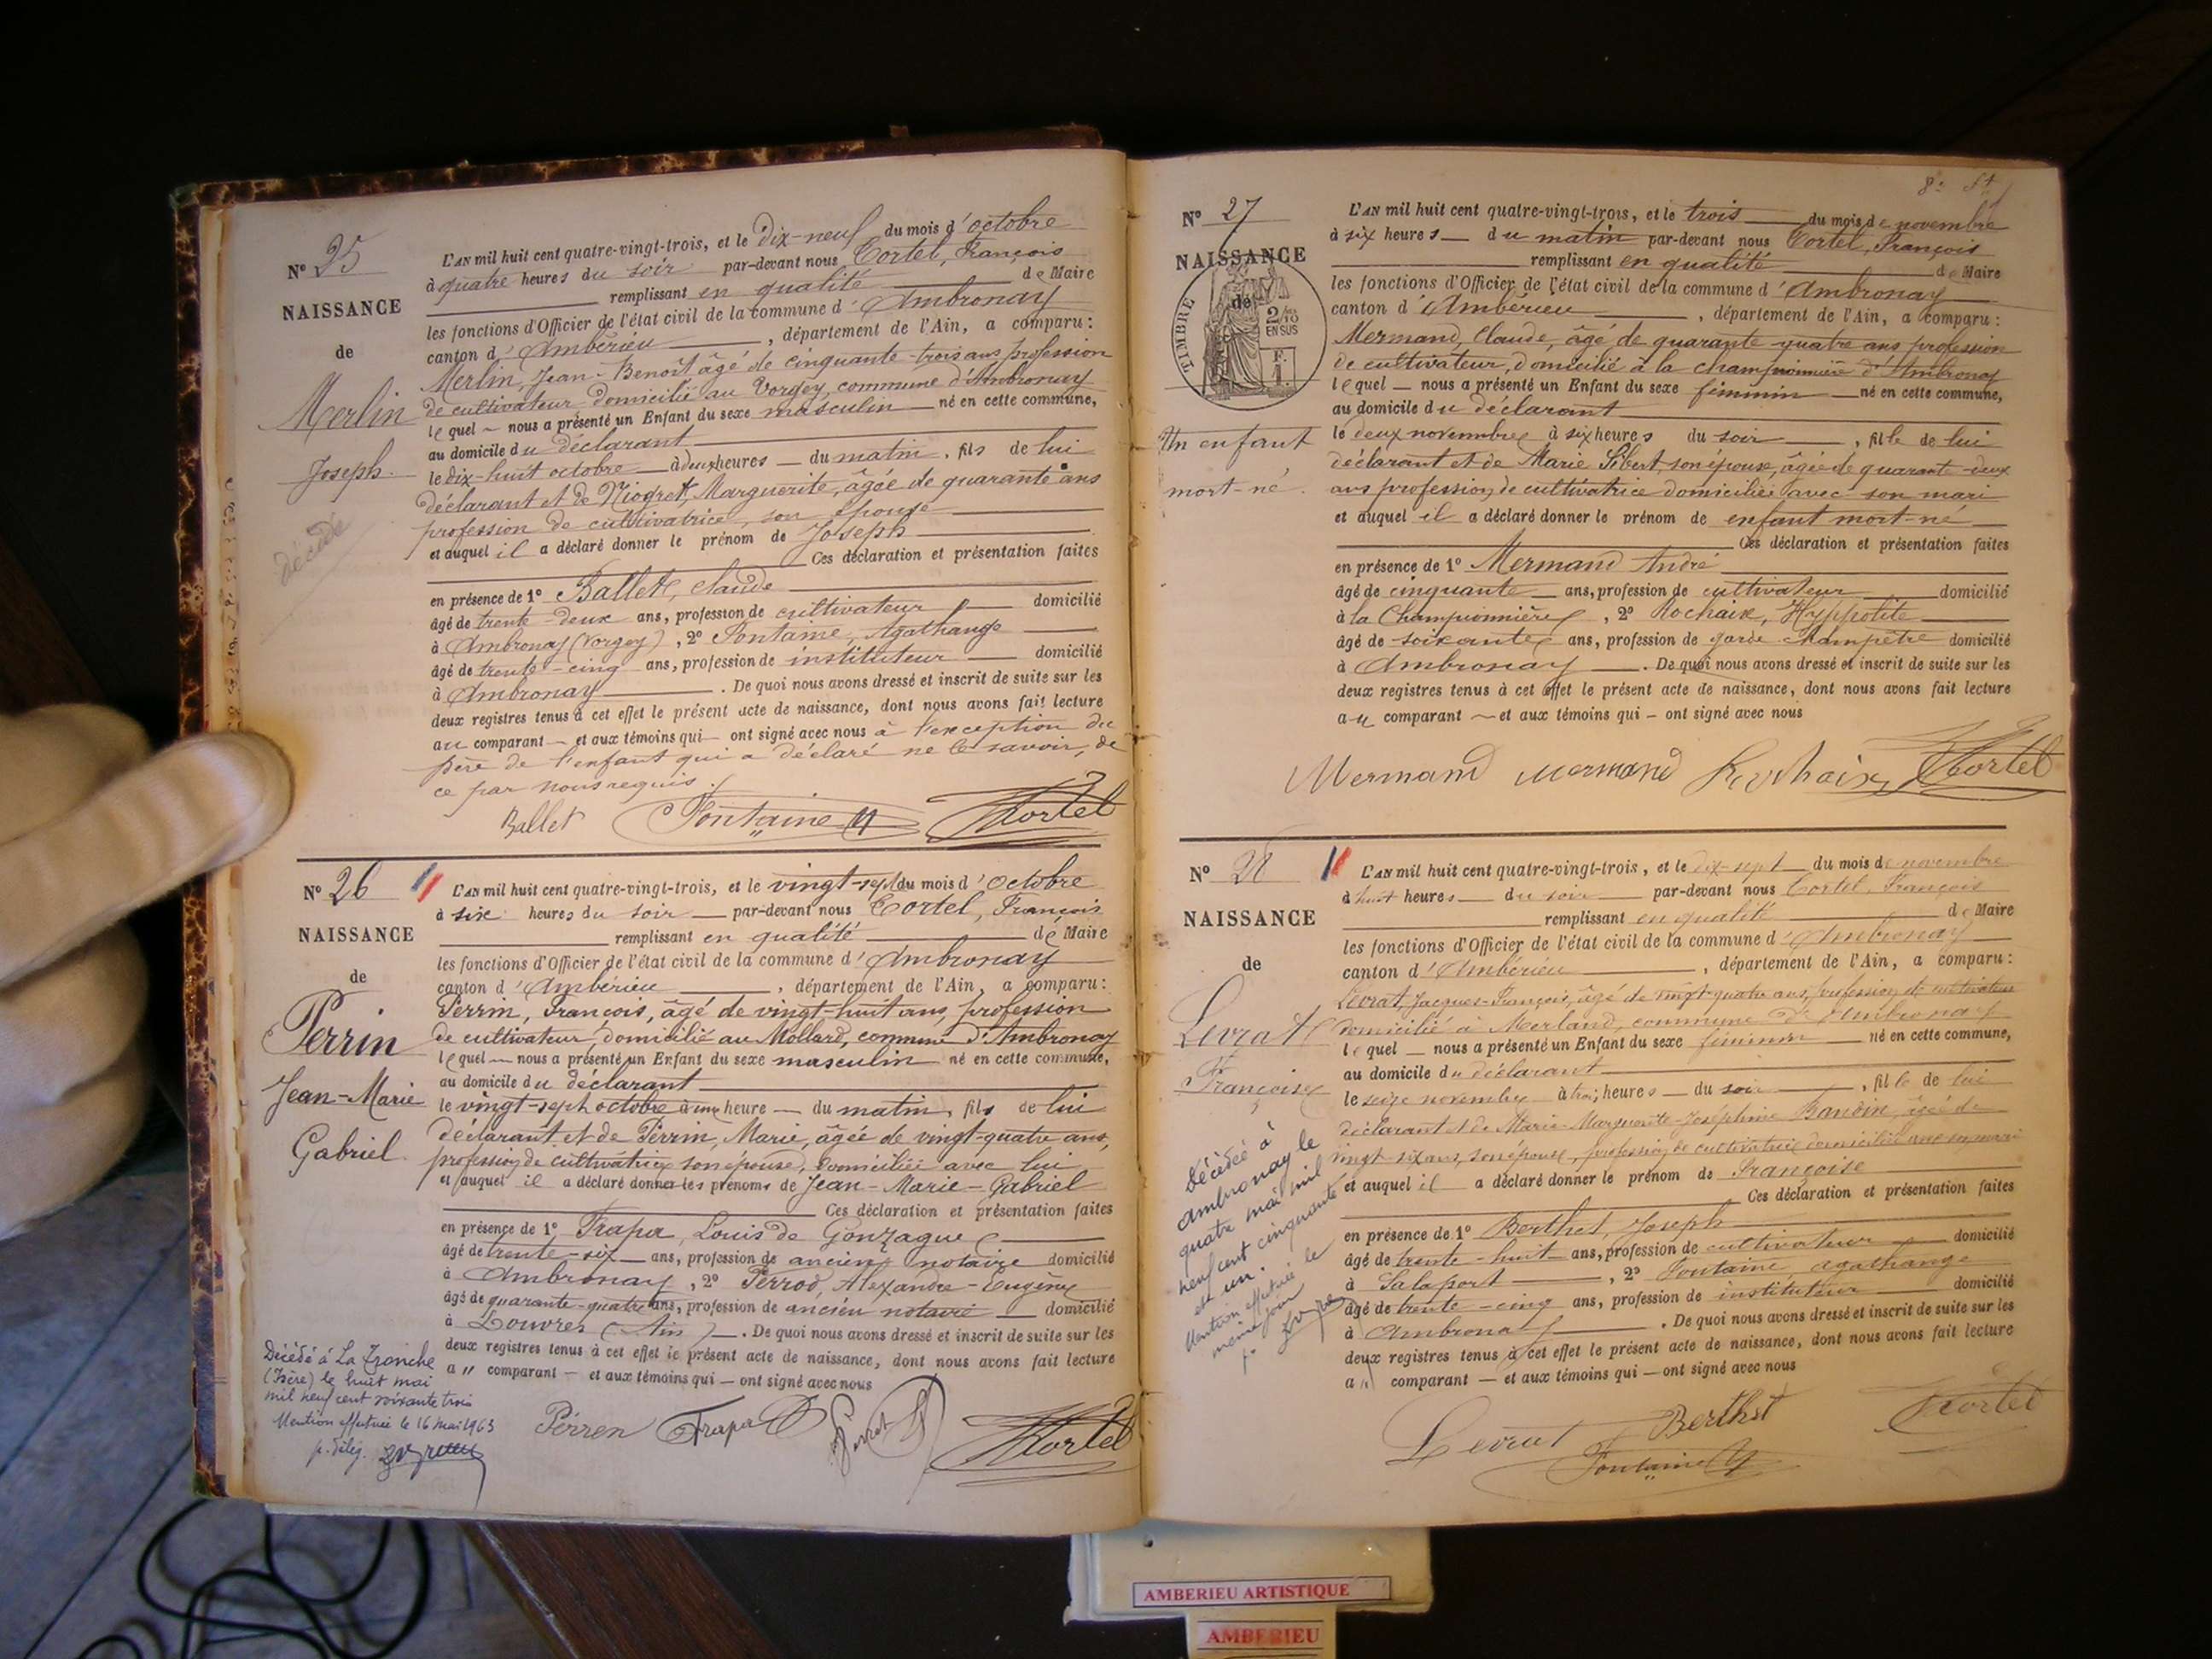 N° 25
NAISSANCE
de
Merlin
Joseph.
décédé
L'AN mil huit cent quatre-vingt-trois, et le dix-neuf du mois d'octobre
à quatre heures du soir par-devant nous Tortel, François
remplissant en qualité de Maire
les fonctions d'Officier de l'état civil de la commune d'Ambronay
canton d'Ambérieu, département de l'Ain, a comparu:
Merlin, Jean-Benoît âgé de cinquante-trois ans profession
de cultivateur domicilié au Vorgey, commune d'Ambronay
lequel nous a présenté un Enfant du sexe masculin né en cette commune,
au domicile du déclarant
le dix-huit octobre à deux heures du matin, fils de lui
déclarant et de Niogret, Marguerite, âgée de quarante ans
profession de cultivatrice, son épouse
et auquel il a déclaré donner le prénom de Joseph
Ces déclaration et présentation faites
en présence de 1° Ballet, Claude
âgé de trente-deux ans, profession de cultivateur domicilié
à Ambronay (Vorgey), 2° Fontaine, Agathange
âgé de trente-cinq ans, profession de instituteur domicilié
à Ambronay. De quoi nous avons dressé et inscrit de suite sur les
deux registres tenus à cet effet le présent acte de naissance, dont nous avons fait lecture
au comparant et aux témoins qui ont signé avec nous à l'exception du
père de l'enfant qui a déclaré ne le savoir, de
ce par nous requis.
Ballet Fontaine Tortel
N° 26
NAISSANCE
de
Perrin
Jean-Marie
Gabriel.
L'AN mil huit cent quatre-vingt-trois, et le vingt-sept du mois d'octobre
à six heures du soir par-devant nous Tortel, François
remplissant en qualité de Maire
les fonctions d'Officier de l'état civil de la commune d'Ambronay
canton d'Ambérieu, département de l'Ain, a comparu:
Perrin, François, âgé de vingt-huit ans, profession
de cultivateur, domicilié au Mollard, commune d'Ambronay
lequel nous a présenté un Enfant du sexe masculin né en cette commune,
au domicile du déclarant
le vingt-sept octobre à une heure du matin, fils de lui
déclarant et de Perrin, Marie, âgée de vingt-quatre ans,
profession de cultivatrice son épouse, domiciliée avec lui
et auquel il a déclaré donner les prénoms de Jean-Marie-Gabriel
Ces déclaration et présentation faites
en présence de 1° Trapa, Louis de Gonzague
âgé de trente-six ans, profession de ancien notaire domicilié
à Ambronay, 2° Perrod, Alexandre-Eugène
âgé de quarante-quatre ans, profession de ancien notaire domicilié
à Louvres (Ain). De quoi nous avons dressé et inscrit de suite sur les
deux registres tenus à cet effet le présent acte de naissance, dont nous avons fait lecture
a" comparant et aux témoins qui ont signé avec nous
Décédé à La Tronche
(Isère) le huit mai
mil neuf cent soixante trois
Mention effectuée le 16 mai 1963
p. délég.
Perren Trapa Perrod Tortel
8e
N° 27
NAISSANCE
de
TIMBRE
2/10
EN SUS
F.
1.
Un enfant
mort-né.
L'AN mil huit cent quatre-vingt-trois, et le trois du mois de novembre
à six heures du matin par-devant nous Tortel, François
remplissant en qualité de Maire
les fonctions d'Officier de l'état civil de la commune d'Ambronay
canton d'Ambérieu, département de l'Ain, a comparu:
Mermand, Claude, âgé de quarante-quatre ans profession
de cultivateur, domicilié à la championnière d'Ambronay
lequel nous a présenté un Enfant du sexe féminin né en cette commune,
au domicile du déclarant
le deux novembre à six heures du soir, fille de lui
déclarant et de Marie Sibert, son épouse, âgée de quarante-deux
ans profession de cultivatrice domiciliée avec son mari
et auquel il a déclaré donner le prénom de enfant mort-né
Ces déclaration et présentation faites
en présence de 1° Mermand André
âgé de cinquante ans, profession de cultivateur domicilié
à la Championnière, 2° Rochaix, Hyppolite
âgé de soixante ans, profession de garde champêtre domicilié
à Ambronay. De quoi nous avons dressé et inscrit de suite sur les
deux registres tenus à cet effet le présent acte de naissance, dont nous avons fait lecture
au comparant et aux témoins qui ont signé avec nous
Mermand mermand Rochaix Tortel
N° 28
NAISSANCE
de
Levrat
Françoise
L'AN mil huit cent quatre-vingt-trois, et le dix-sept du mois de novembre
à huit heures du soir par-devant nous Tortel, François
remplissant en qualité de Maire
les fonctions d'Officier de l'état civil de la commune d'Ambronay
canton d'Ambérieu, département de l'Ain, a comparu:
Levrat, Jacques-François, âgé de vingt-quatre ans, profession de cultivateur
domicilié à Merland, commune d'Ambronay
lequel nous a présenté un Enfant du sexe féminin né en cette commune,
au domicile du déclarant
le seize novembre à trois heures du soir, fille de lui
déclarant et de Marie-Marguerite-Joséphine Baudin, âgée de
vingt-six ans, son épouse, profession de cultivatrice domiciliée avec son mari
et auquel il a déclaré donner le prénom de Françoise
Ces déclaration et présentation faites
en présence de 1° Berthet, Joseph
âgé de trente-huit ans, profession de cultivateur domicilié
à Salaport, 2° Fontaine, Agathange
âgé de trente-cinq ans, profession de instituteur domicilié
à Ambronay. De quoi nous avons dressé et inscrit de suite sur les
deux registres tenus à cet effet le présent acte de naissance, dont nous avons fait lecture
a" comparant et aux témoins qui ont signé avec nous
Décédée à
Ambronay le
quatre mai mil
neuf cent cinquante
et un.
Mention effectuée le
même jour
Levrat Berthet Tortel
Fontaine
AMBERIEU ARTISTIQUE
AMBERIEU